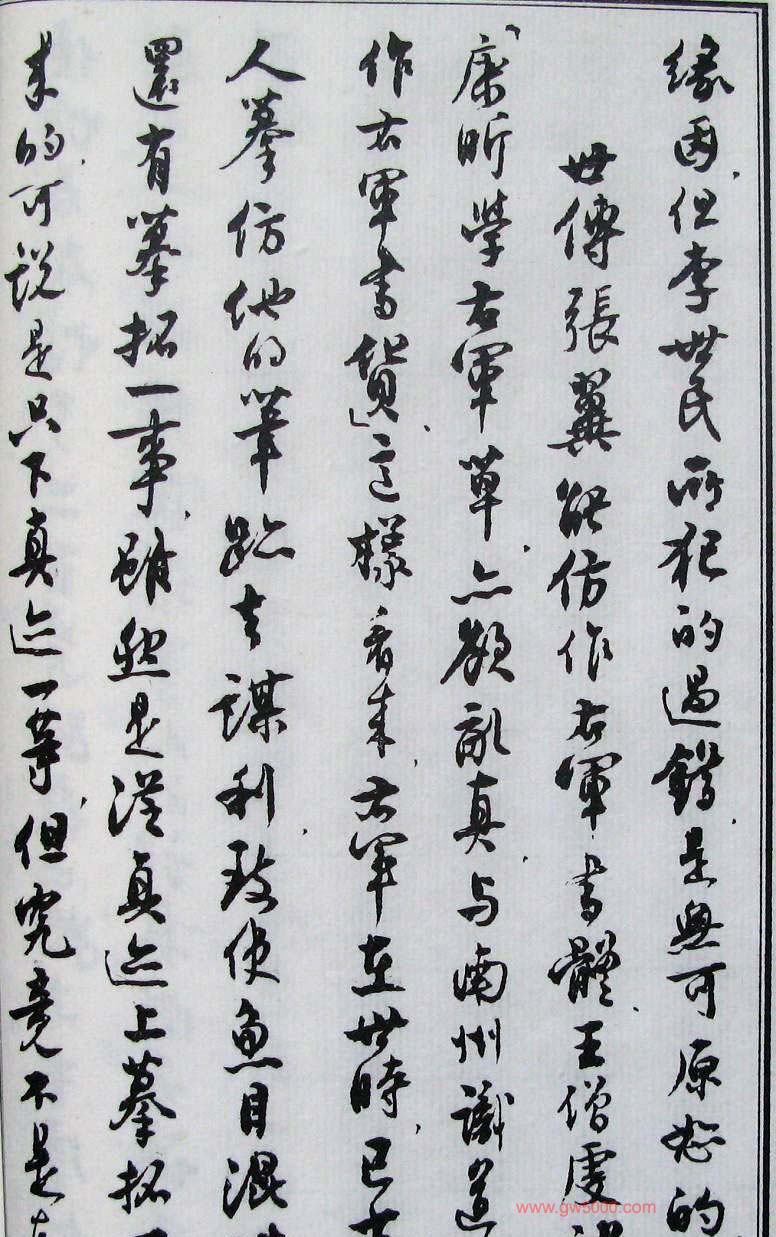 緣因,但李世民所犯的過錯,是無可原恕的
世傳張翼能仿作右軍書體,王僧虔
「康昕學右軍草,亦欲亂真,与南州識道
作右軍書貨」,這樣看来,右軍在世時,已
人摹仿他的筆跡去謀利,致使魚目混
還有摹拓一事,雖然是從真迹上摹拓
来的,可說是只下真迹一等,但究竟不是
www.gw5000.com